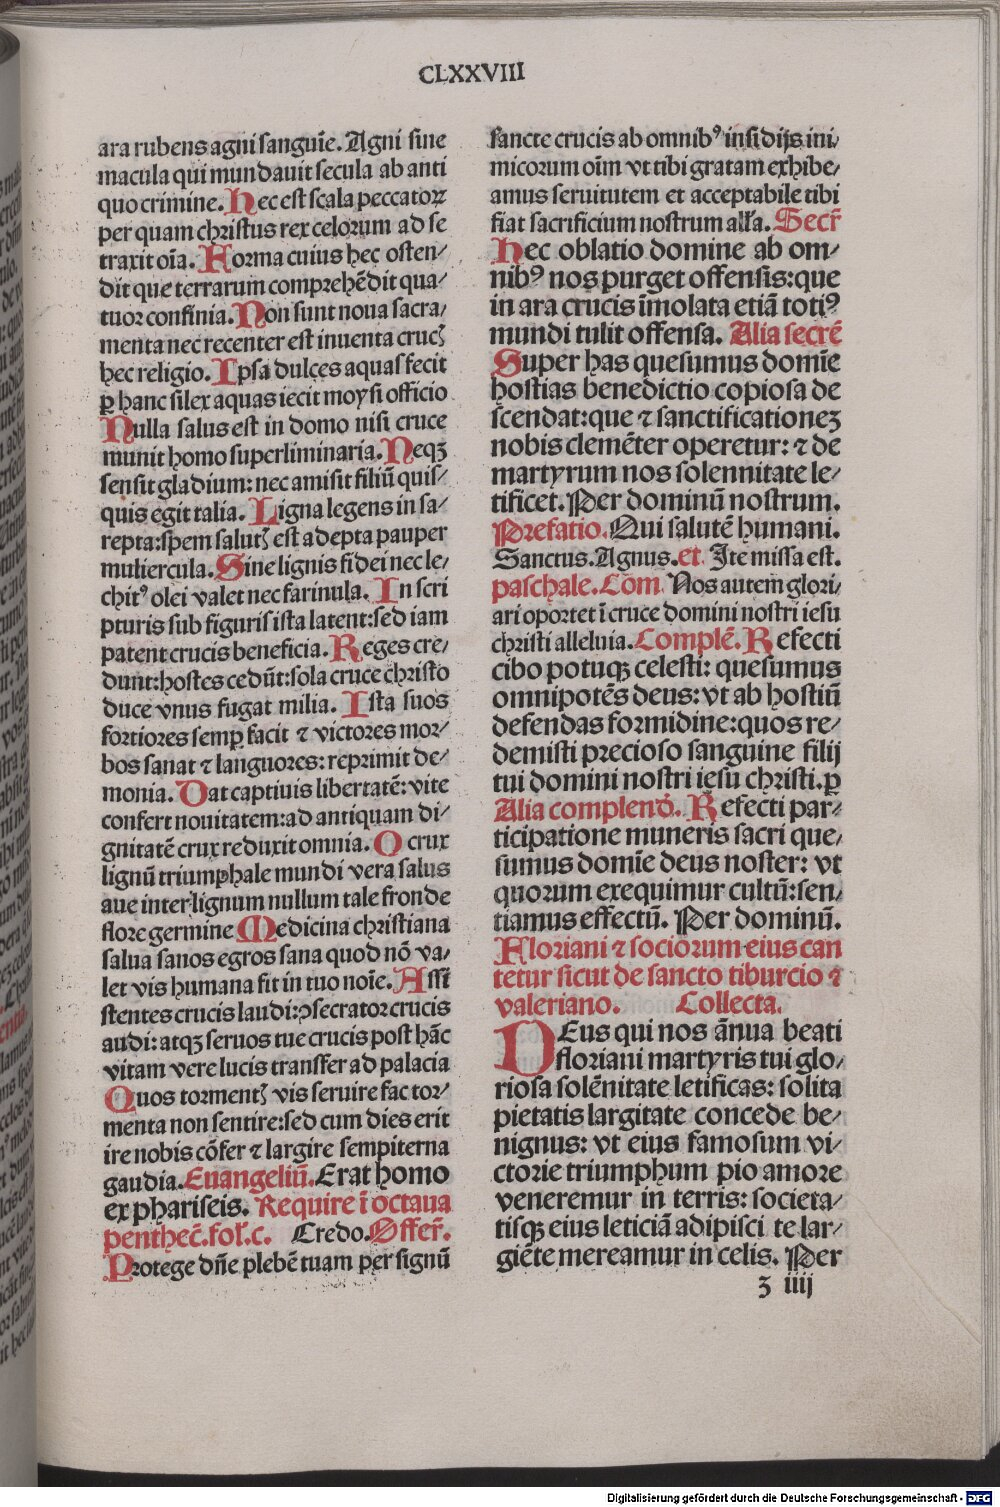 CLXXVIII
ara rubens agni sanguīe. Agni sine
macula qui mundauit secula ab anti
quo crimine. Hec est scala peccatoꝝ
per quam christus rex celorum ad se
traxit oīa. Forma cuius hec osten/
dit que terrarum comprehēdit qua/
tuor confinia. Non sunt noua sacra/
menta nec recenter est inuenta cruc
hec religio. Ipsa dulces aquas fecit
ꝑ hanc silex aquas iecit moysi officio
Nulla salus est in domo nisi cruce
munit homo superliminaria. Neqꝫ
sensit gladium: nec amisit filiū quis/
quis egit talia. Ligna legens in sa/
repta: spem salut est adepta pauper
muliercula. Sine lignis fidei nec le/
chitꝰ olei valet nec farinula. In scri
pturis sub figuris ista latent: sed iam
patent crucis beneficia. Reges cre/
dunt: hostes cedūt: sola cruce christo
duce vnus fugat milia. Ista suos
fortiores semꝑ facit ⁊ victores mor/
bos sanat ⁊ languores: reprimit de/
monia. Dat captiuis libertatē: vite
confert nouitatem: ad antiquam di/
gnitatē crux reduxit omnia. O crux
lignū triumphale mundi vera salus
aue inter lignum nullum tale fronde
flore germine Medicina christiana
salua sanos egros sana quod nō va/
let vis humana fit in tuo noīe. Assi
stentes crucis laudi: ꝯsecrator crucis
audi: atqꝫ seruos tue crucis post hāc
vitam vere lucis transfer ad palacia
Quos torment vis seruire fac tor/
menta non sentire: sed cum dies erit
ire nobis cōfer ⁊ largire sempiterna
gaudia. Euangeliū. Erat homo
ex phariseis. Require ī octaua
penthec̄. fol̄. c. Credo. Offer̄.
Protege dn̄e plebē tuam per signū
sancte crucis ab omnibꝰ insidijs ini/
micorum oīm vt tibi gratam exhibe/
amus seruitutem et acceptabile tibi
fiat sacrificium nostrum all̄a. Secr̄
Hec oblatio domine ab om/
nibꝰ nos purget offensis: que
in ara crucis īmolata etiā totiꝰ
mundi tulit offensa. Alia secrē
Super has quesumus domīe
hostias benedictio copiosa de
scendat: que ⁊ sanctificationeꝫ
nobis clemēter operetur: ⁊ de
martyrum nos solennitate le/
tificet. Per dominū nostrum.
Prefatio. Qui salutē humani.
Sanctus. Agnus. et. Ite missa est.
paschale. Com̄. Nos autem glori/
ari oportet ī cruce domini nostri iesu
christi alleluia. Complē. Refecti
cibo potuqꝫ celesti: quesumus
omnipotēs deus: vt ab hostiū
defendas formidine: quos re/
demisti precioso sanguine filij
tui domini nostri iesu christi. ꝑ
Alia complend̄. Refecti par/
ticipatione muneris sacri que/
sumus domīe deus noster: vt
quorum exequimur cultū: sen/
tiamus effectū. Per dominū.
Floriani ⁊ sociorum eius can
tetur sicut de sancto tiburcio ⁊
valeriano. Collecta.
DEus qui nos ānua beati
floriani martyris tui glo/
riosa solēnitate letificas: solita
pietatis largitate concede be/
nignus: vt eius famosum vi/
ctorie triumphum pio amore
veneremur in terris: societa/
tisqꝫ eius leticiā adipisci te lar/
giēte mereamur in celis. Per
ꝫ iiij
Digitalisierung gefördert durch die Deutsche Forschungsgemeinschaft - DFG